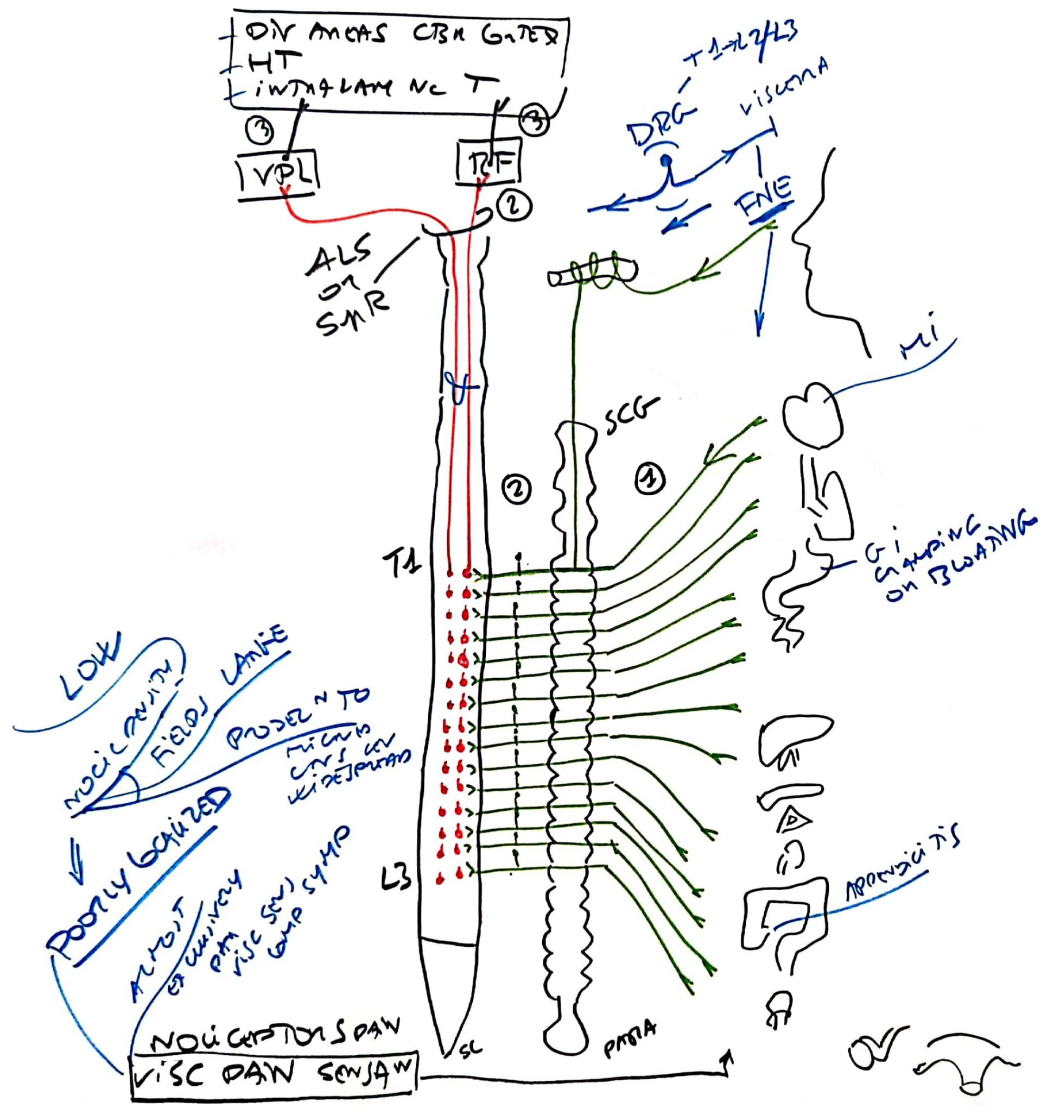 DIV AREAS CBR CORTEX
HT
INTRALAM NC T
③
③
VPL
RF
②
ALS
OR
SPR
T1→L2/L3
DRG
VISCERA
FNE
MI
SCG
②
①
T1
GI
CRAMPING
OR BLOATING
LOW
NOCIC DENSITY
FIELDS LARGE
PROJEC N TO
HIGHER
CNS CN
WIDESPREAD
POORLY LOCALIZED
L3
ALMOST
EXCLUSIVELY
PAIN
VISC SENS
COMP SYMP
APPENDICITIS
NOCICEPTORS PAIN
VISC PAIN SENSAN
SC